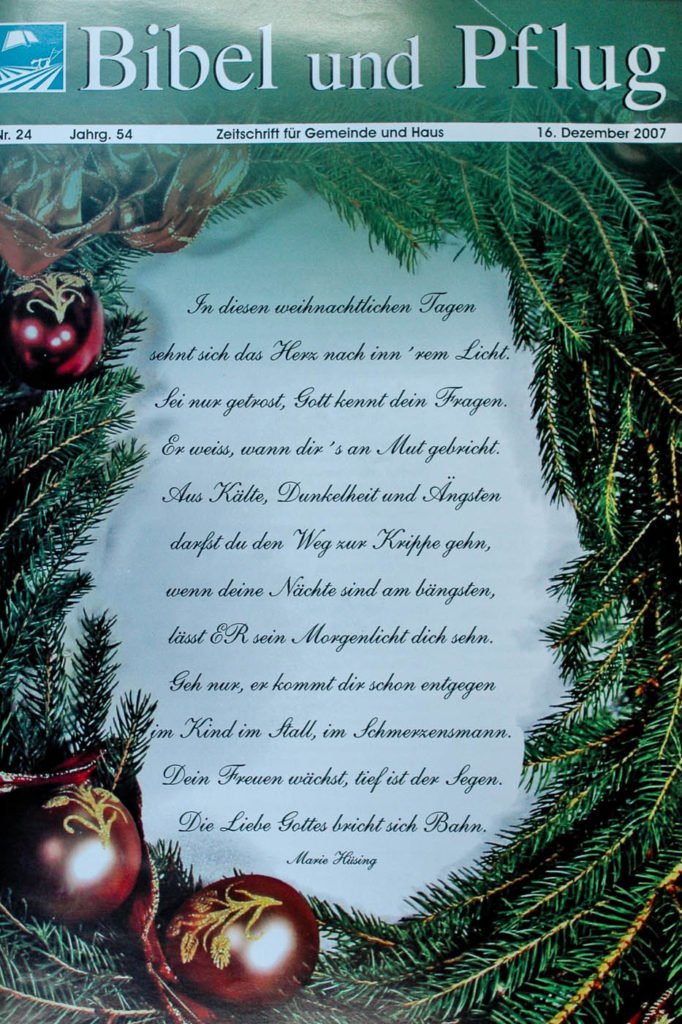 Bibel und Pflug
Nr. 24 Jahrg. 54 Zeitschrift für Gemeinde und Haus 16. Dezember 2007
In diesen weihnachtlichen Tagen
sehnt sich das Herz nach inn´rem Licht.
Sei nur getrost, Gott kennt dein Fragen.
Er weiss, wann dir´s an Mut gebricht.
Aus Kälte, Dunkelheit und Ängsten
darfst du den Weg zur Krippe gehn,
wenn deine Nächte sind am bängsten,
lässt ER sein Morgenlicht dich sehn.
Geh nur, er kommt dir schon entgegen
im Kind im Stall, im Schmerzensmann.
Dein Freuen wächst, tief ist der Segen.
Die Liebe Gottes bricht sich Bahn.
Marie Hüsing